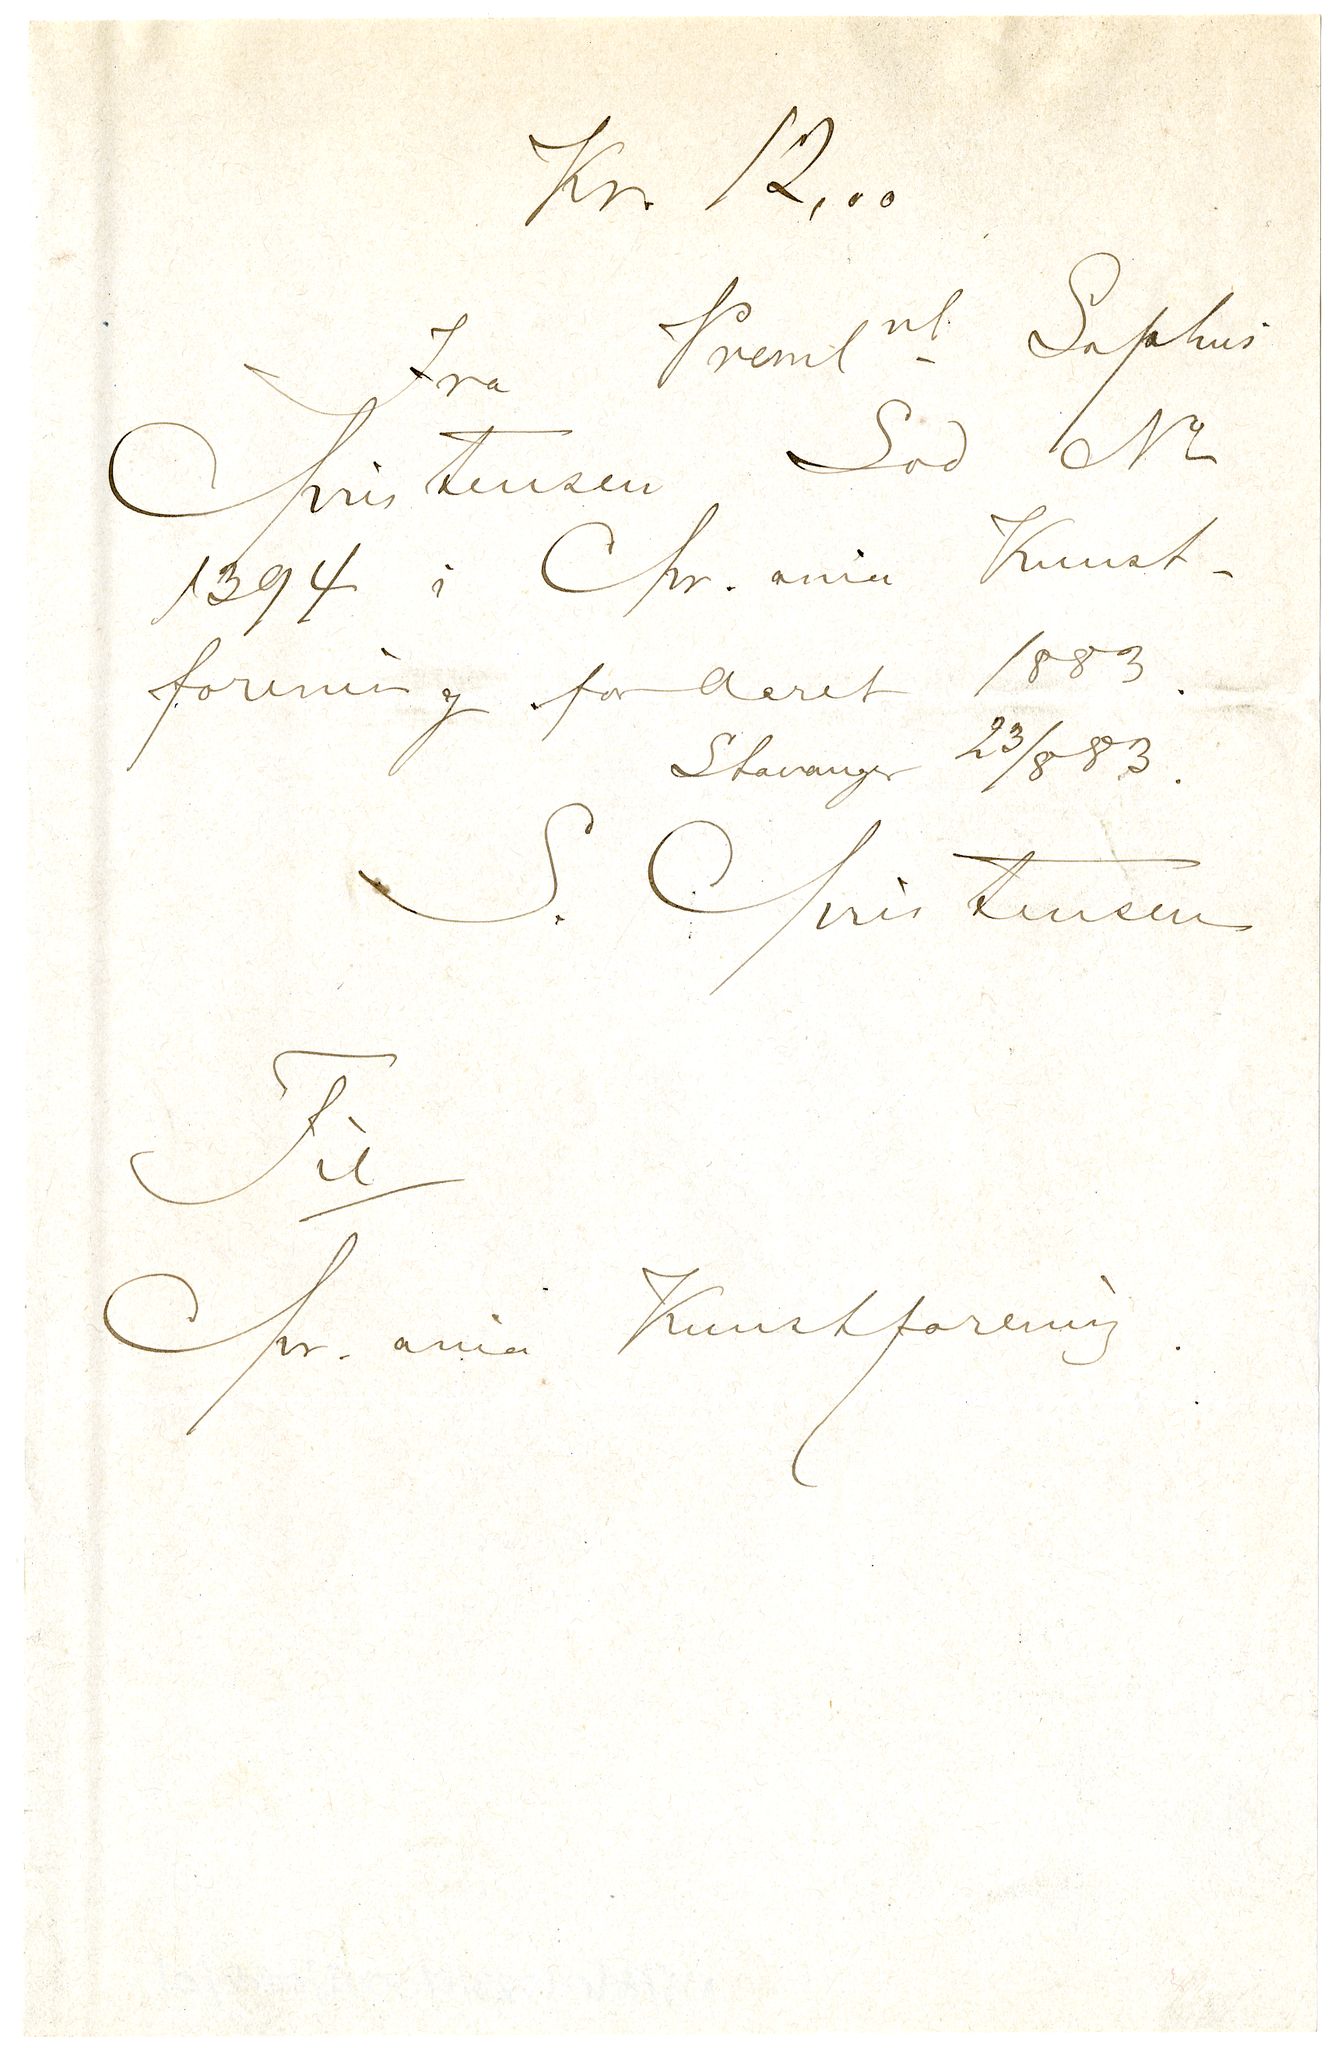 Kr. 12,00
Fra Preml nt Sophus
Christensen Lod No
1394 i Chr.ania Kunst-
forening for Aaret 1883.
Stavanger 23/8 83.
S. Christensen
Til
Chr.ania Kunstforening.